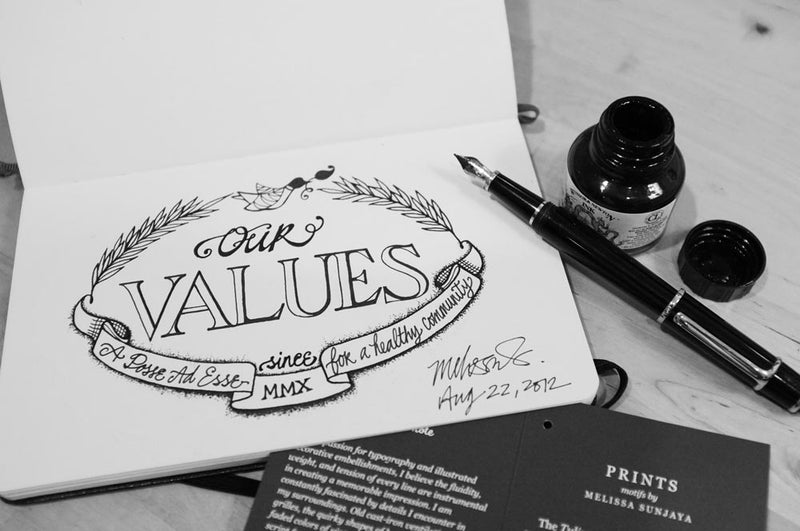 Our
VALUES
A Posse Ad Esse
since
MMX
for a healthy community
Aug 22, 2012
INK
passion for typography and illustrated
decorative embellishments, I believe the fluidity,
weight, and tension of every line are instrumental
in creating a memorable impression. I am
constantly fascinated by details I encounter in
my surroundings. Old cast-iron ventilation
grilles, the quirky shapes of
faded colors of
PRINTS
motifs by
MELISSA SUNJAYA
The